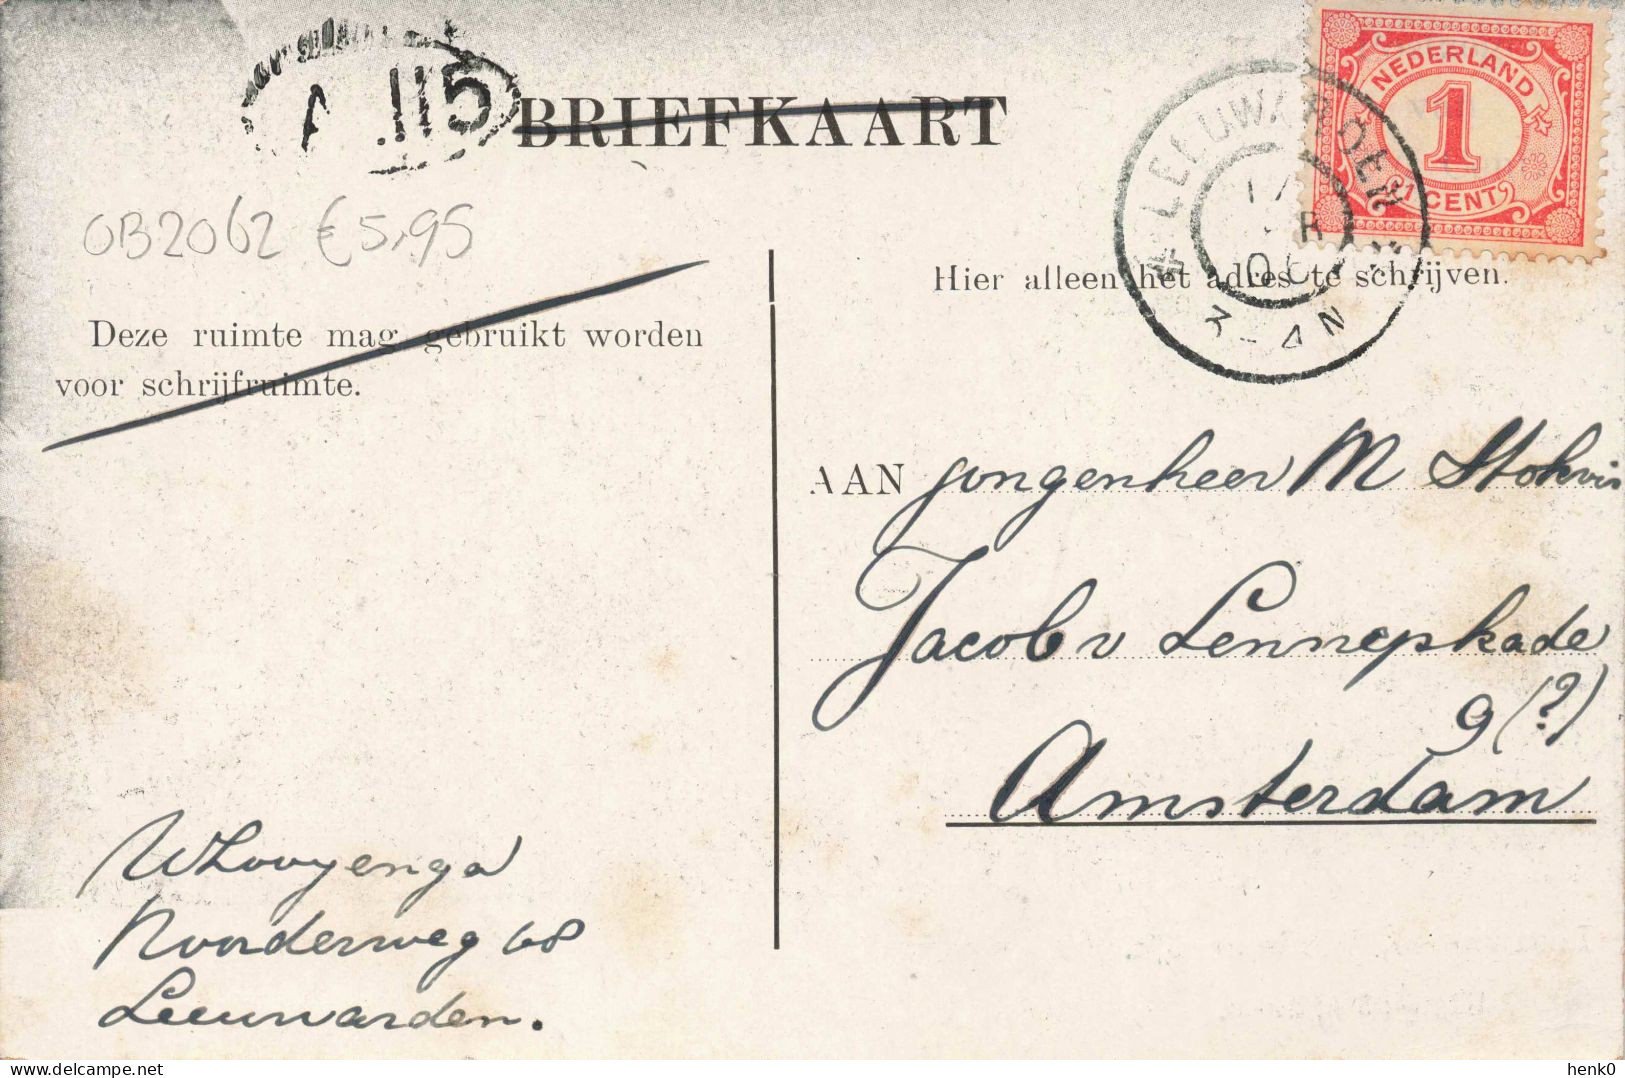 A II5
BRIEFKAART
NEDERLAND
1
1 CENT
LEEUWARDEN
3-4N
OB2062 €5,95
Hier alleen het adres te schrijven.
Deze ruimte mag gebruikt worden
voor schrijfruimte.
AAN jongenheer M Stokvis
Jacob v Lennepkade
9 (?)
Amsterdam
Noorderweg 68
Leeuwarden.
henk0